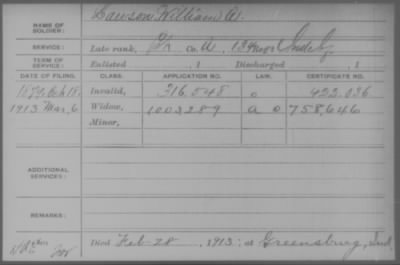 Lawson William A.
NAME OF SOLDIER:
SERVICE: Late rank, Co. A, 134 Ind
TERM OF SERVICE: Enlisted , 1 Discharged , 1
DATE OF FILING. CLASS. APPLICATION NO. LAW. CERTIFICATE NO.
1879. Invalid, 316.548 422.036
1913 Mar. 6 Widow, 1003289 758,646
Minor,
ADDITIONAL SERVICES:
REMARKS:
Died Feb 28, 1913; at Greensburg, Ind.